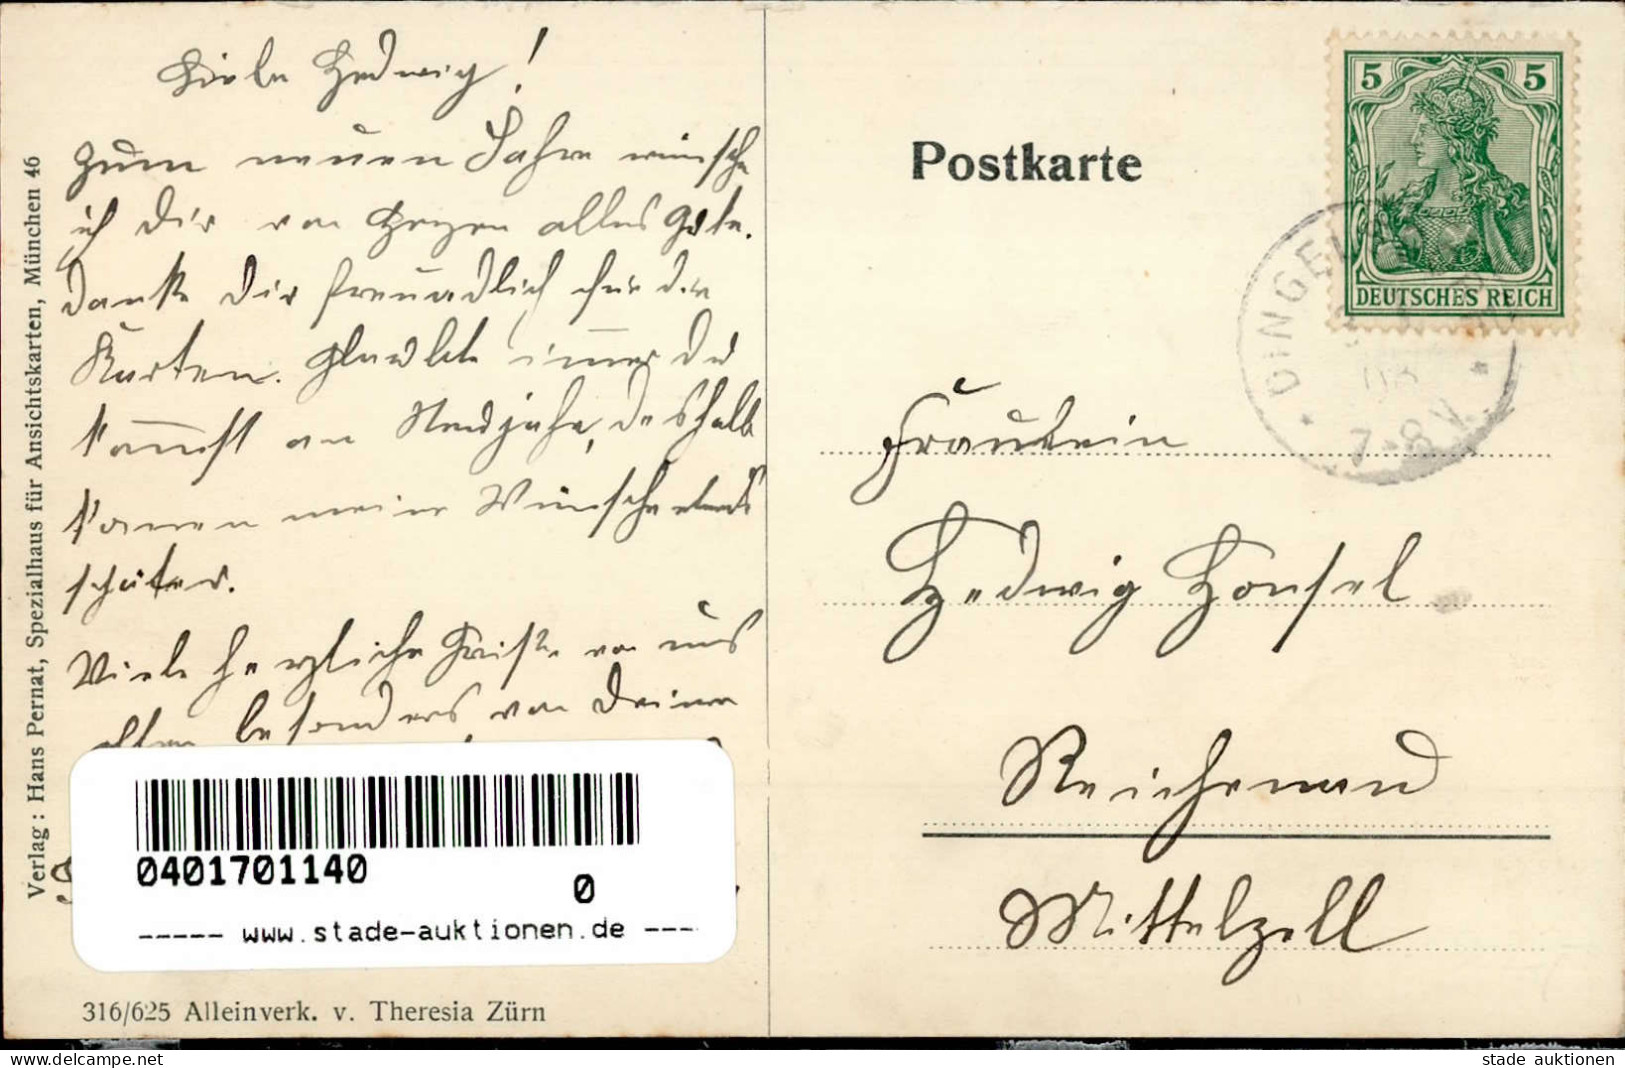 Liebe Hedwig!
Zum neuen Jahre wünsche
ich Dir von Herzen alles Gute.
Danke Dir freundlich für die
Karten. Glaubte immer Du
kommst an Neujahr, deshalb
kamen meine Wünsche etwas
später.
Viele herzliche Grüße von uns
allen besonders von Deiner
Verlag: Hans Pernat, Spezialhaus für Ansichtskarten, München 46
0401701140
0
----- www.stade-auktionen.de ----
316/625 Alleinverk. v. Theresia Zürn
Postkarte
5 5
DEUTSCHES REICH
DINGEL
7-8 V.
Fräulein
Hedwig Honsel
Reichenau
Mittelzell
stade-auktionen.de
stade auktionen